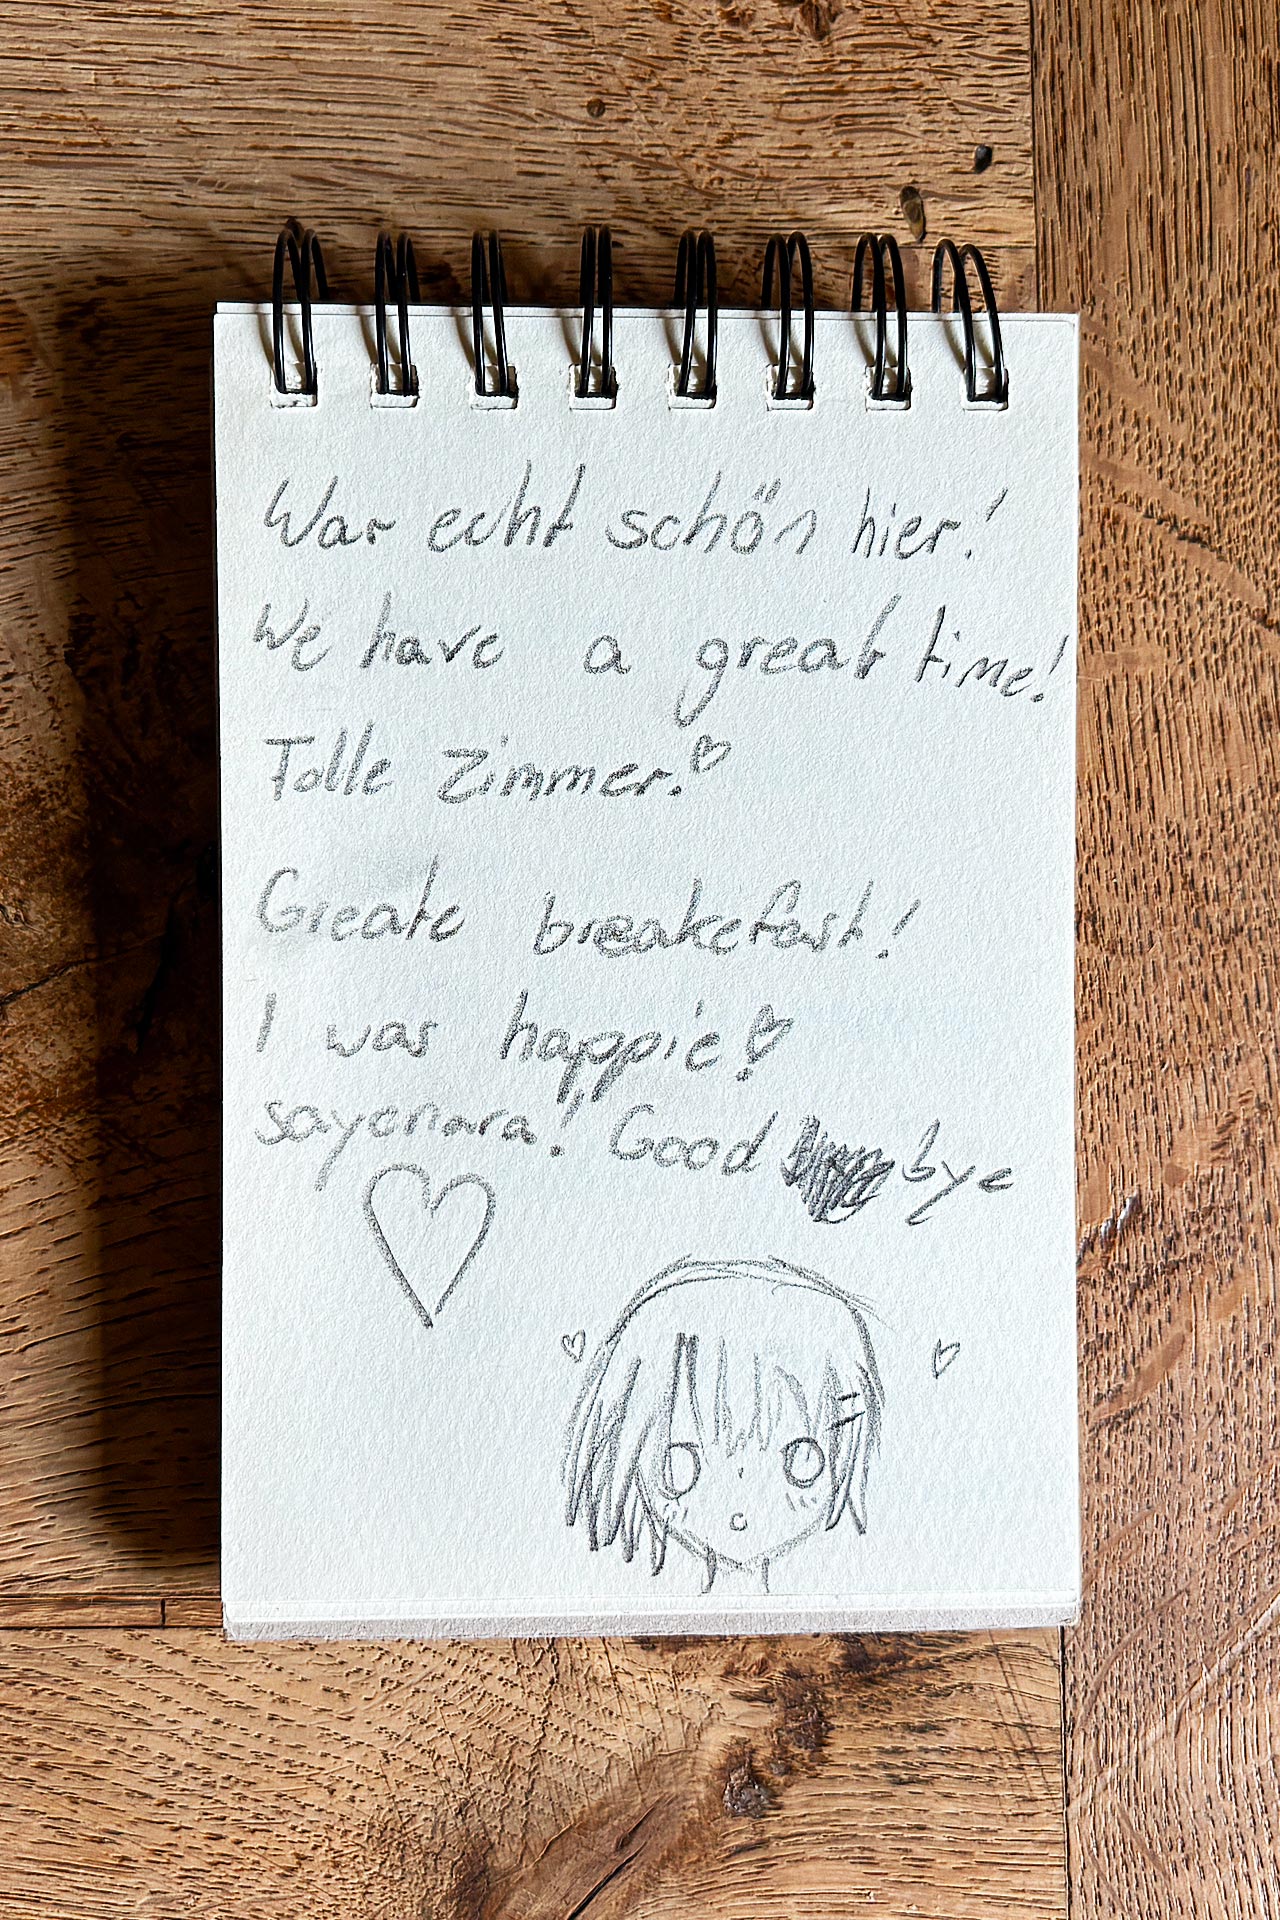 War echt schön hier!
We have a great time!
Tolle Zimmer!
Greate breakefast!
I was happie!
sayonara! Good bye